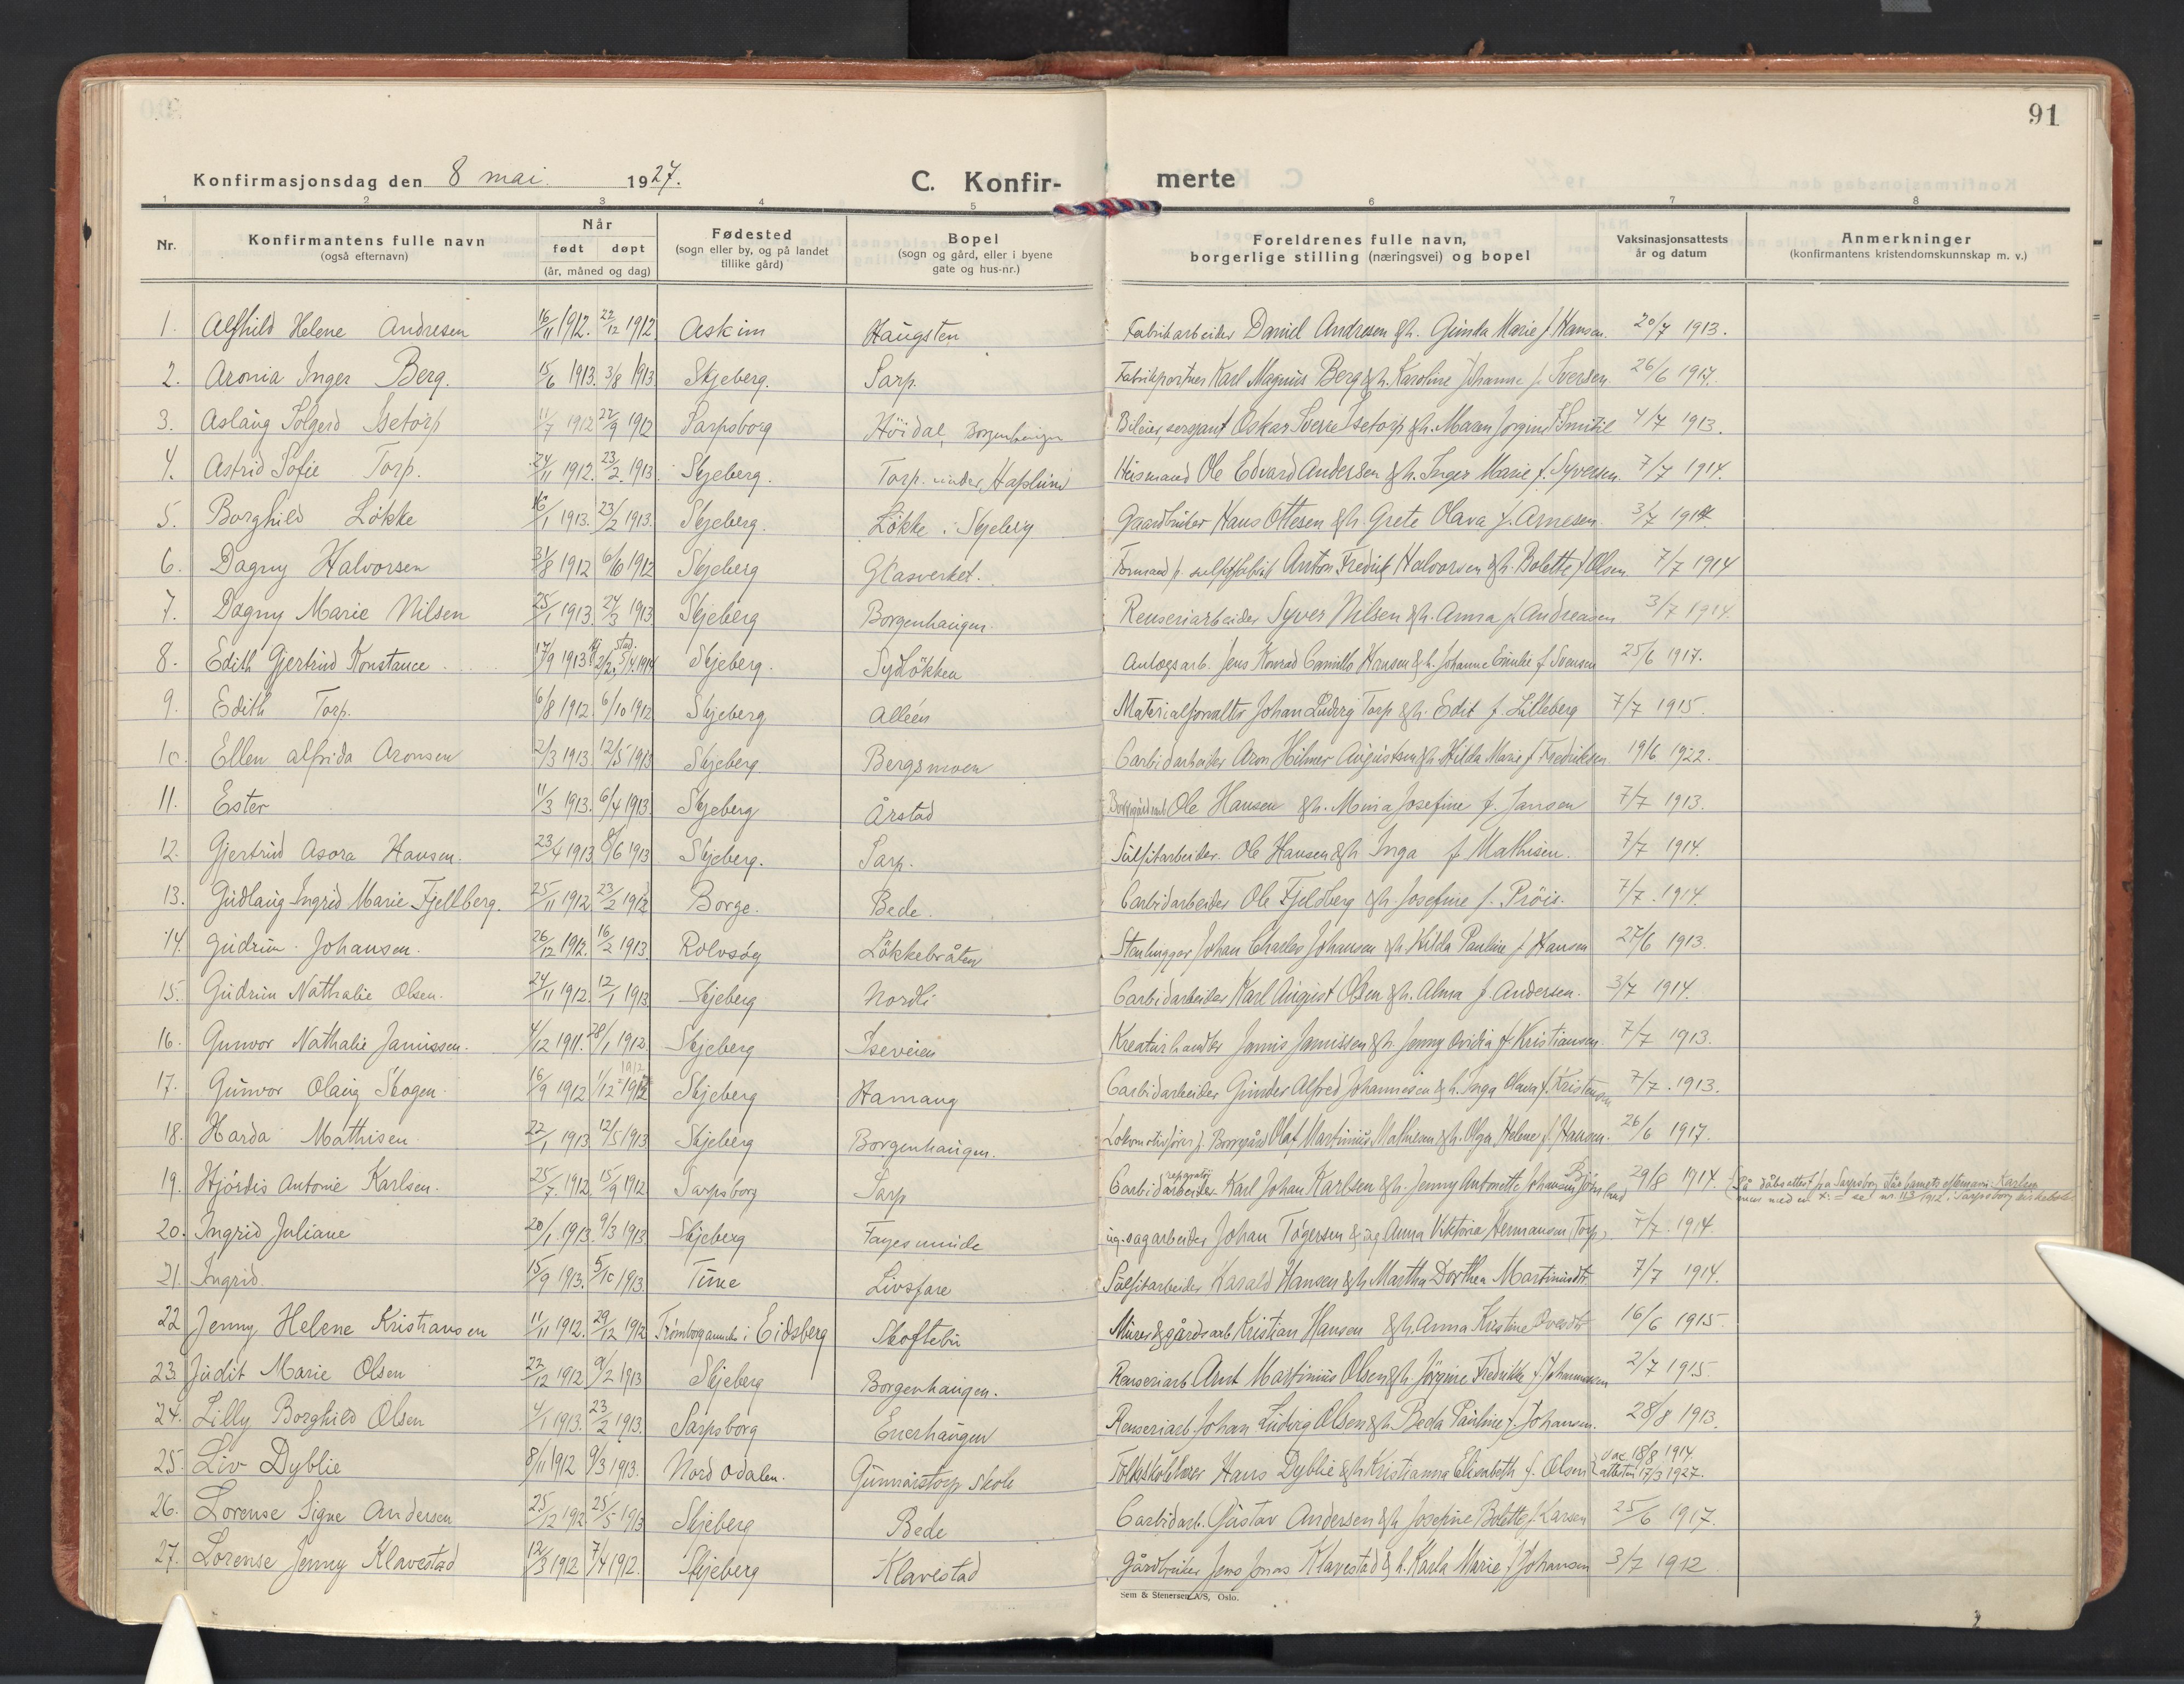 91
Konfirmasjonsdag den 8 mai. 1927.
C. Konfir-
merte
1 2 3 4 5 6 7 8
Nr.
Konfirmantens fulle navn
(også efternavn)
Når
født døpt
(år, måned og dag)
Fødested
(sogn eller by, og på landet
tillike gård)
Bopel
(sogn og gård, eller i byene
gate og hus-nr.)
Foreldrenes fulle navn,
borgerlige stilling (næringsvei) og bopel
Vaksinasjonsattests
år og datum
Anmerkninger
(konfirmantens kristendomskunnskap m. v.)
1. Alfhild Helene Andresen 16/11 1912. 22/12 1912 Askim Haugsten Fabrikarbeider Daniel Andresen & h. Gunda Marie f. Hansen. 20/7 1913.
2. Aronia Inger Berg. 15/6 1913. 3/8 1913 Skjeberg. Sarp. Fabrikportner Karl Magnus Berg & h. Karoline Johanne f. Iversen 26/6 1917.
3. Aslaug Solgerd Isetorp 11/7 1912 22/9 1912 Sarpsborg Höidal, Borgenhaugen sergant Oskar Sverre Isetorp & h. Maren Jorgine 4/7 1913.
4. Astrid Sofie Torp. 24/11 1912. 23/2 1913. Skjeberg. Torp. under Haslund Husmand Ole Edvard Andersen & h. Inger Marie f. Syversen. 7/7 1914.
5. Borghild Lökke 16/1 1913. 23/2 1913. Skjeberg. Lökke i Skjeberg Gaardbruker Hans Ottesen & h. Grete Olava f. Arnesen 3/7 1914
6. Dagny Halvorsen 31/8 1912 6/10 1912 Skjeberg Glasverket. Formand p. Anton Fredrik Halvorsen & h. Bolette f Olsen 7/7 1914
7. Dagny Marie Nilsen 25/1 1913. 24/3 1913 Skjeberg Borgenhaugen. Renseriarbeider Syver Nilsen & h. Anna f. Andreasen 3/7 1914.
8. Edith Gjertrud Konstance 17/9 1913 2/2. stad. 5/4 1914 Skjeberg. Sylökken Anlegsarb. Jens Konrad Camillo Hansen & h. Johanne Emilie f Svensen 25/6 1917.
9. Edith Torp. 6/8 1912. 6/10 1912 Skjeberg Alleén Materialforvalter Johan Ludvig Torp & h. Edit f. Lilleberg 7/7 1915.
10. Ellen Alfrida Aronsen 2/3 1913. 12/5 1913 Skjeberg. Bergsmoen Carbidarbeider Aron Hilmer Augustsen & h. Hilda Marie f Fredriksen. 19/6 1922.
11. Ester 11/3 1913. 6/4 1913. Skjeberg Årstad Ole Hansen & h. Mina Josefine f. Jansen 7/7 1913.
12. Gjertrud Asora Hansen. 23/4 1913 8/6 1913 Skjeberg. Sarp. Sulfitarbeider. Ole Hansen & h Inga f Mathisen. 7/7 1914.
13. Gudlaug Ingrid Marie Fjellberg. 25/11 1912 23/2 1913 Borge. Bede. Carbidarbeider Ole Fjeldberg & h. Josefine f. Pröis. 7/7. 1914.
14. Gudrun Johansen. 26/12 1912. 16/2 1913. Rolvsøy Løkkebråten Stenhugger Johan Charles Johansen & h. Hilda Pauline f Hansen 27/6 1913.
15. Gudrun Nathalie Olsen. 24/11 1912. 12/1 1913 Skjeberg Nordli Carbidarbeider Karl August Olsen & h. Alma f. Andersen. 3/7 1914.
16. Gunvor Nathalie Janussen. 4/12 1911. 28/1 1912. Skjeberg Iseveien Kreaturhandler Janus Janussen & h. Jenny Ovidia f. Kristiansen. 7/7 1913.
1912
17. Gunvor Olaug Skogen 16/9 1912 1/12 1912 Skjeberg Hamang Carbidarbeider Gunder Alfred Johannesen & h. Inga Olava f. Kristensen 7/7. 1913.
18. Harda Mathisen 22/1 1913 12/5 1913 Skjeberg Borgenhaugen. Lokomotivfører p. Borregård Olaf Martinius Mathisen & h. Olga Helene f. Hansen. 26/6 1917.
19. Hjördis Antonie Karlsen. 25/7. 1912. 15/9 1912 Sarpsborg Sarp Carbidarbeider. Karl Johan Karlsen & h. Jenny Antonette Johansen 29/8 1914. På dåbsattest fra Sarpsborg står barnets efternavn: Karlsen
se nr. 113/1912 i Sarpsborg kirkebok
20. Ingrid Juliane 20/1. 1913. 9/3 1913. Skjeberg ug. sagarbeider Johan Tögersen & ug Anna Viktoria Hermansen, Torp. 7/7. 1914.
21. Ingrid. 15/9 1913. 5/10 1913. Tune Livsfare Sulfitarbeider Harald Hansen & h Martha Dorthea Martinusdtr 7/7 1914.
22 Jenny Helene Kristiansen 11/11 1912. 29/12 1912 Trömborg annex i Eidsberg Skoftebu Murer & gårdsarb. Kristian Hansen & h. Anna Kristine 16/6 1915.
23. Judit Marie Olsen 22/12 1912 9/2 1913 Skjeberg Borgenhaugen. Renseriarb. Arnt Martinius Olsen & h. Jörgine Fredrikke f Johannesen 2/7 1915.
24. Lilly Borghild Olsen 4/1 1913. 23/2 1913. Sarpsborg Enerhaugen Renseriarb. Johan Ludvig Olsen & h. Beda Pauline f. Johansen. 28/8 1913.
25. Liv Dyblie 8/11 1912 9/3 1913. Nord Odalen. Gunnarstorp skole Folkeskolelærer Hans Dyblie & h Kristianna Elisabeth f. Olsen Vac. 18/8 1914.
attesten 17/3 1927.
26. Lorense Signe Andersen 25/12 1912 25/5 1913 Skjeberg Bede Carbidarb. Gustav Andersen & h Josefine Bolette f. Larsen 25/6 1917.
27. Lorense Jenny Klavestad 12/3 1912 7/4 1912. Skjeberg Klavestad Gårdbruker Jens Jonas Klavestad & h. Karla Marie f Johansen 3/7 1912
Sem & Stenersen A/S, Oslo.